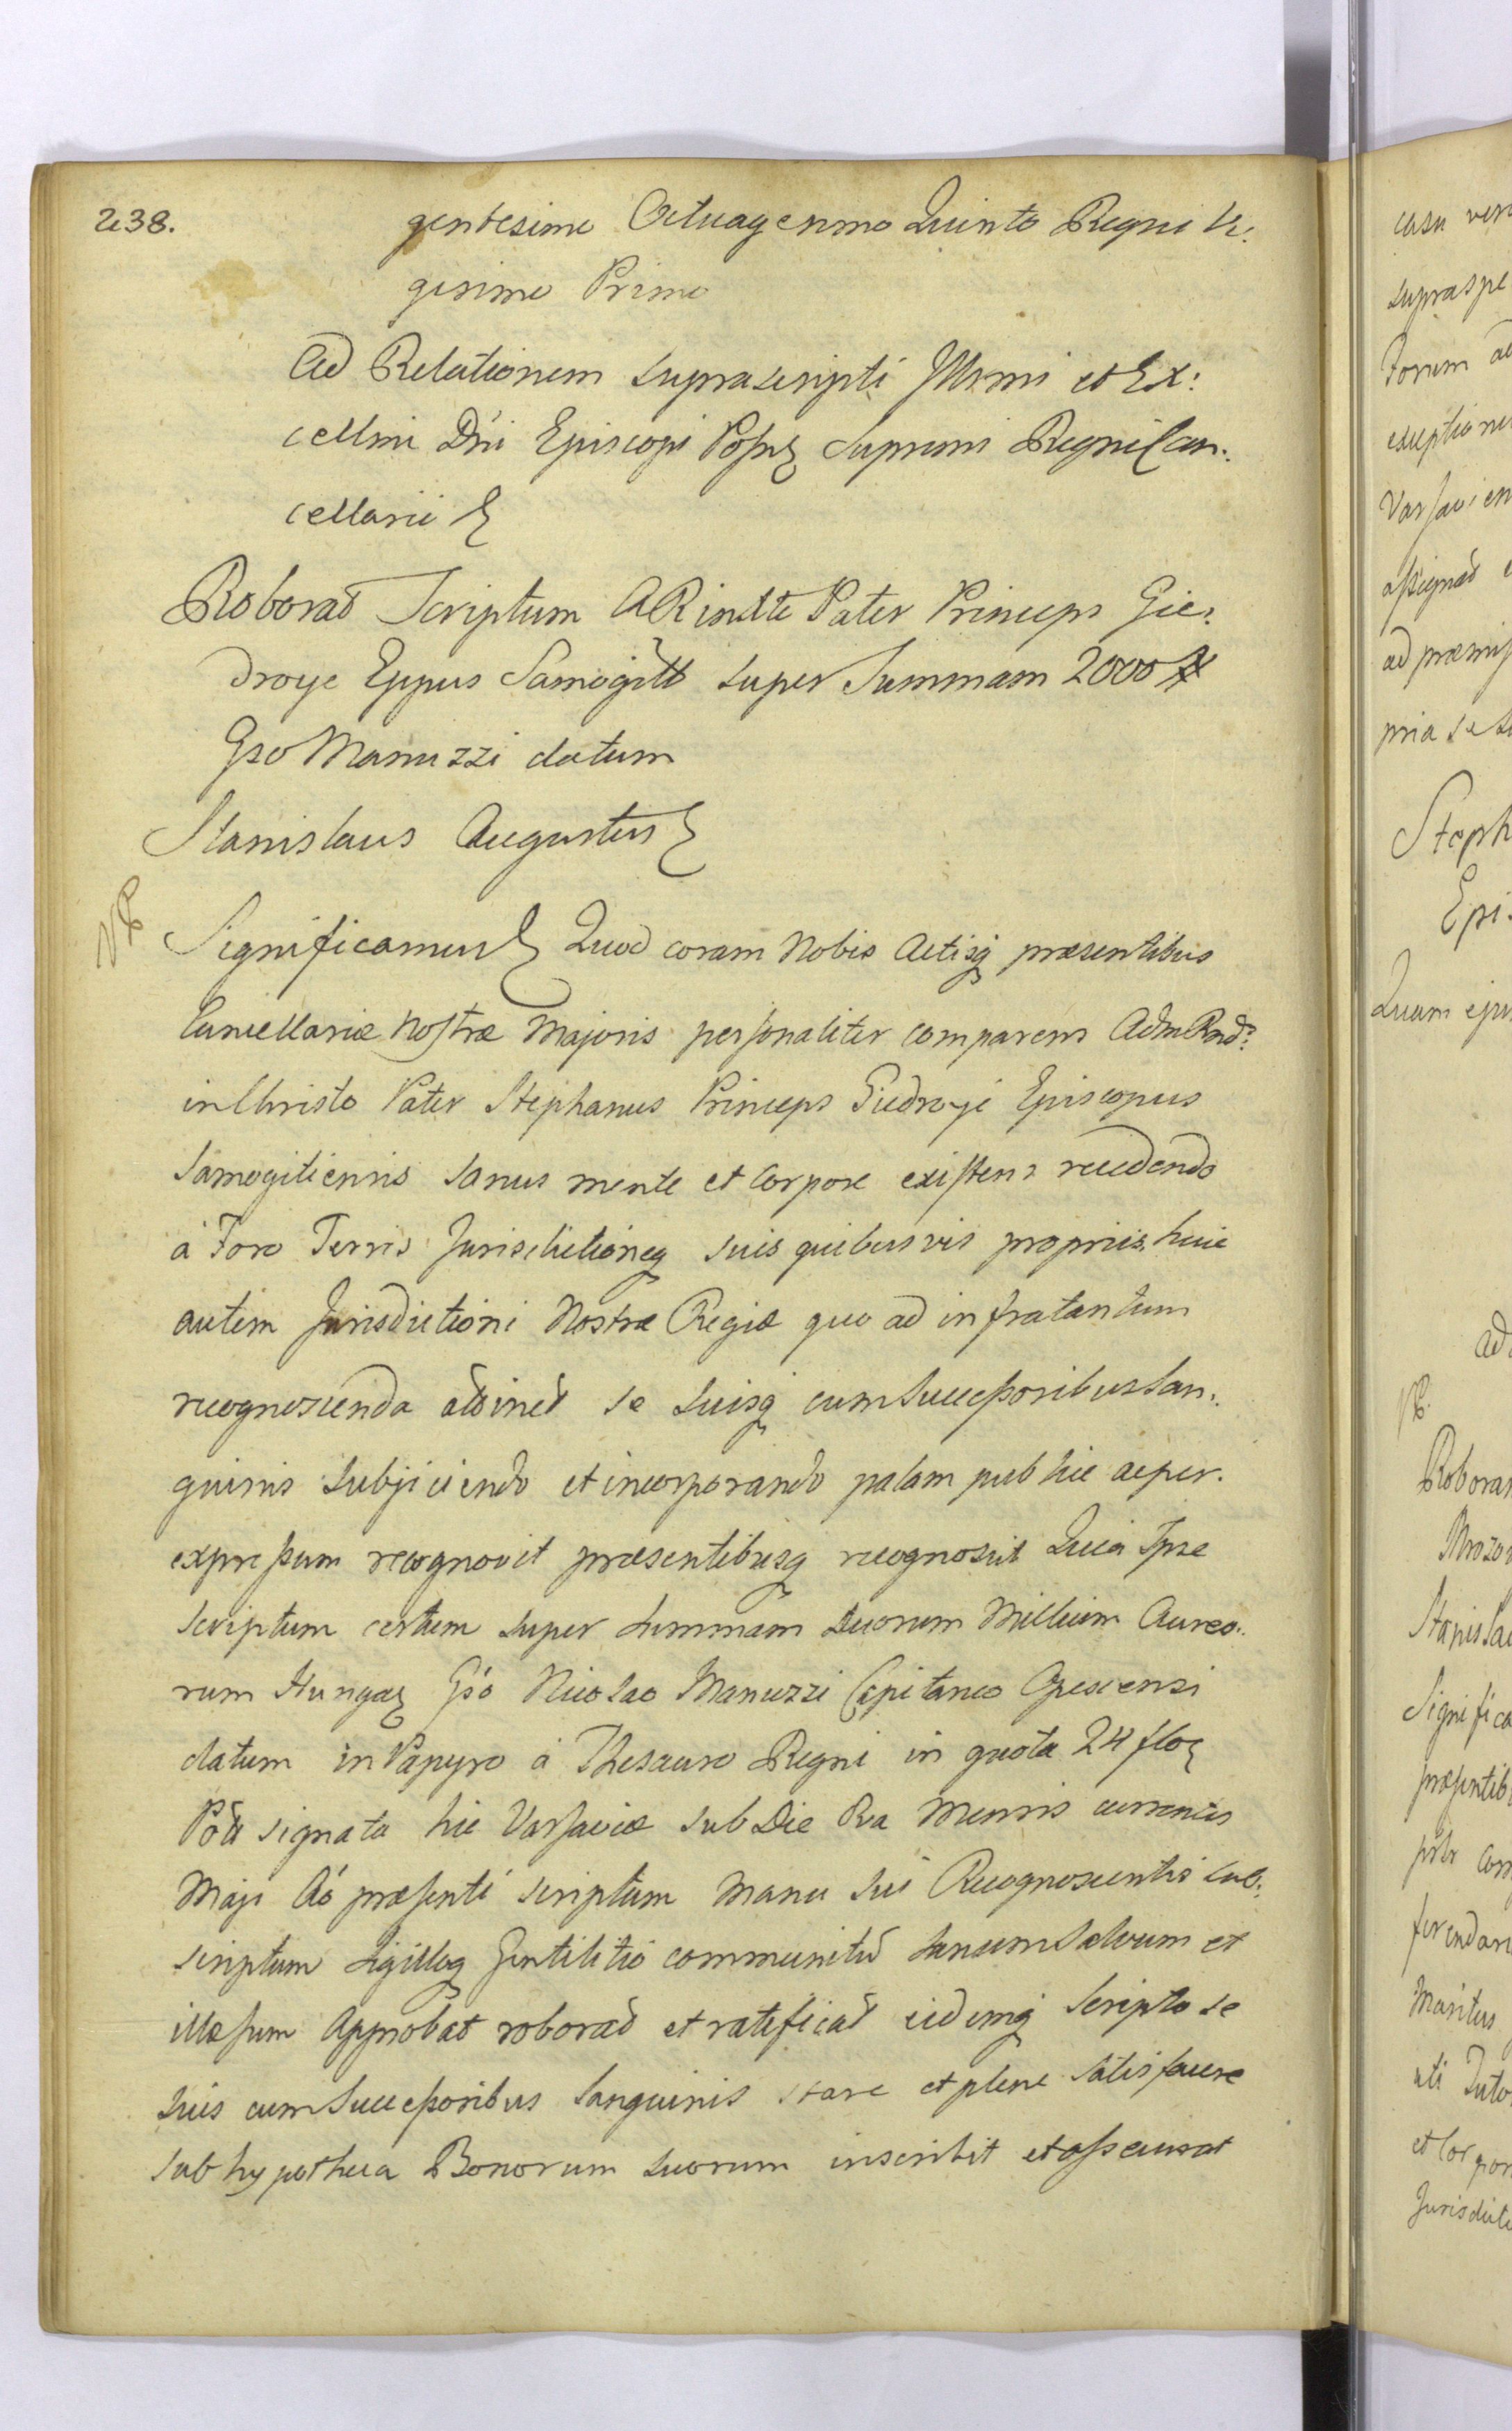 238.
gentesimo Octuagesimo Quinto Regni Vi:
gesimo Primo
Ad Relationem suprascripti Illrmi et Ex:
cellmi Dni Episcopi Posn Supremi Regni Can:
cellarii
Roborat Scriptum ARindte Pater Princeps Gie:
droyc Eppus Samogitt super Summam 2000 #
Gso Manuzzi datum
Stanislaus Augustus
NB Significamus Quod coram Nobis Actisq praesentibus
Cancellariae Nostrae Majoris personaliter comparens AdmRnd:
in Christo Pater Stephanus Princeps Giedroyc Episcopus
Samogitiensis sanus mente et corpore existens recedendo
á Foro Terris Jurisdictioneq suis quibusvis propriis, huic
autem Jurisdictioni Nostrae Regiae quo ad infratantum
recognoscenda attinet se suisq cum Successoribus San:
guinis subjiciendo et incorporando palam publice ac per
expressum recognovit praesentibusq recognoscit Quia Ipse
scriptum certum super summam Duorum Millium Aureo:
rum Hungar Gso Nicolao Manuzzi Capitaneo Opescensi
datum in Papyro á Thesauro Regni in quota 24 flor
Pol signata hic Varsaviae sub Die 2va Mensis currentis
Maji Aó praesenti scriptum manu sui Recognoscentis sub:
scriptum sigilloq Gentilitio communitum sanum salvum et
illaesum Approbat roborat et ratificat eidemq Scripto se
suis cum Successoribus Sanguinis stare et plene satisfacere
sub hypotheca Bonorum suorum inscribit et assecurat
casu
supraspe
Forum ad
exceptione
Varsavien
assignat
ad praemis
pria se
Steph
Epi
Quam ejus
Ad
NB.
Roborat
Mrozo
Stanislau
Significa
praesentib
com
ferendari
Maritus
uti Tuto
et Corpor
Jurisdicti